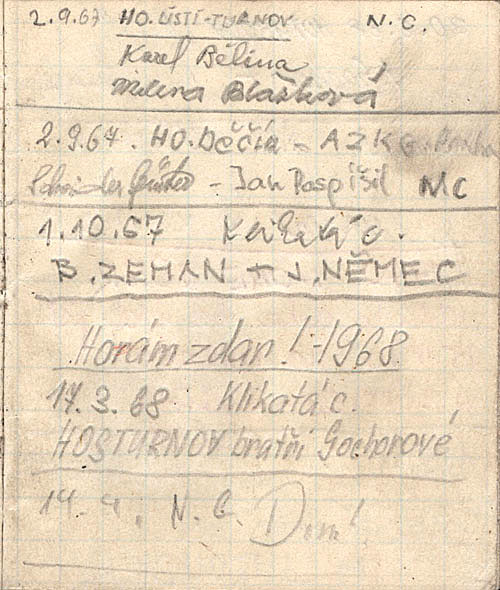 2.9.67 HO.ÚSTÍ-TURNOV N.C.
Karel Bělina
Milena Blášková
2.9.67. HO.Děčín - AZK
- Jan Pospíšil NC
1.10.67
B.ZEMAN + J.NĚMEC
Horám zdar! - 1968
17.3.68 Klikatá c.
HOSTURNOV bratři Gochorové
14.4. N.C.